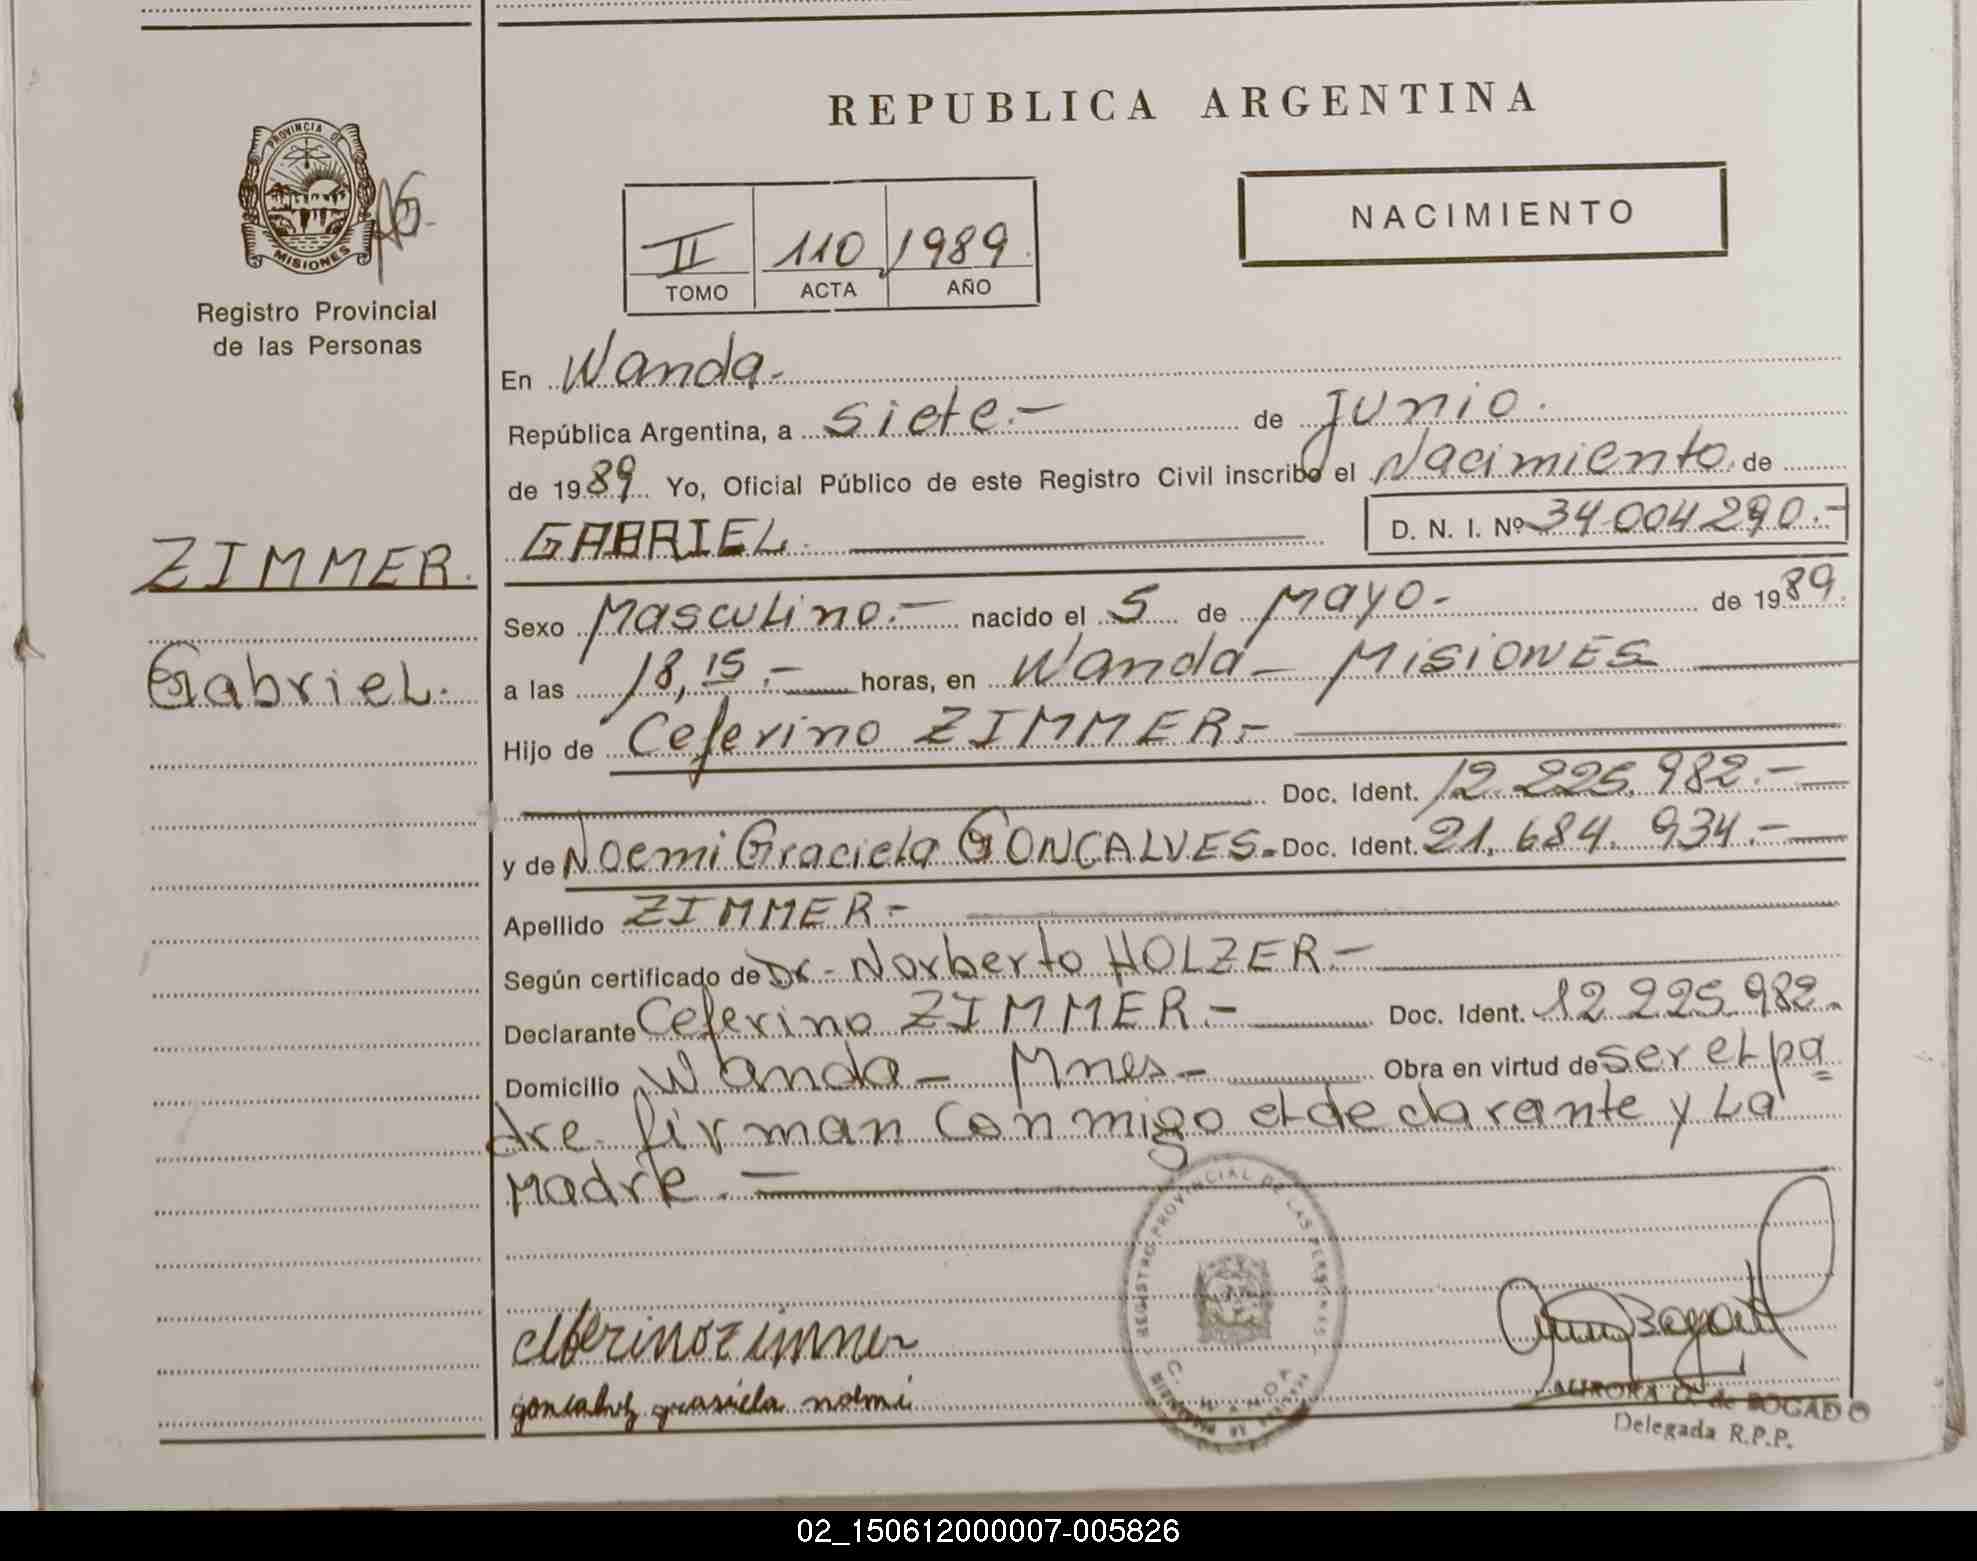 REPUBLICA ARGENTINA
PROVINCIA DE
MISIONES
Registro Provincial
de las Personas
NACIMIENTO
II 110 1989
TOMO ACTA AÑO
ZIMMER.
Gabriel.
En Wanda.-
República Argentina, a siete.- de Junio.
de 1989 Yo, Oficial Público de este Registro Civil inscribo el Nacimiento de
GABRIEL. D. N. I. Nº 34.004.290.-
Sexo Masculino.- nacido el 5 de Mayo.- de 1989.
a las 18,15.- horas, en Wanda - MISIONES
Hijo de Ceferino ZIMMER.-
Doc. Ident. 12.225.982.-
y de Noemi Graciela GONCALVES.- Doc. Ident. 21.684.934.-
Apellido ZIMMER.-
Según certificado de Dr.- Norberto HOLZER.-
Declarante Ceferino ZIMMER.- Doc. Ident. 12.225.982.-
Domicilio Wanda - Mnes.- Obra en virtud de ser el pa
dre. firman conmigo el declarante y La
Madre.-
REGISTRO PROVINCIAL DE LAS PERSONAS
WANDA
ceferino zimmer
goncalvez grasiela noemi
AURORA O. de BOGADO
Delegada R.P.P.
02_150612000007-005826